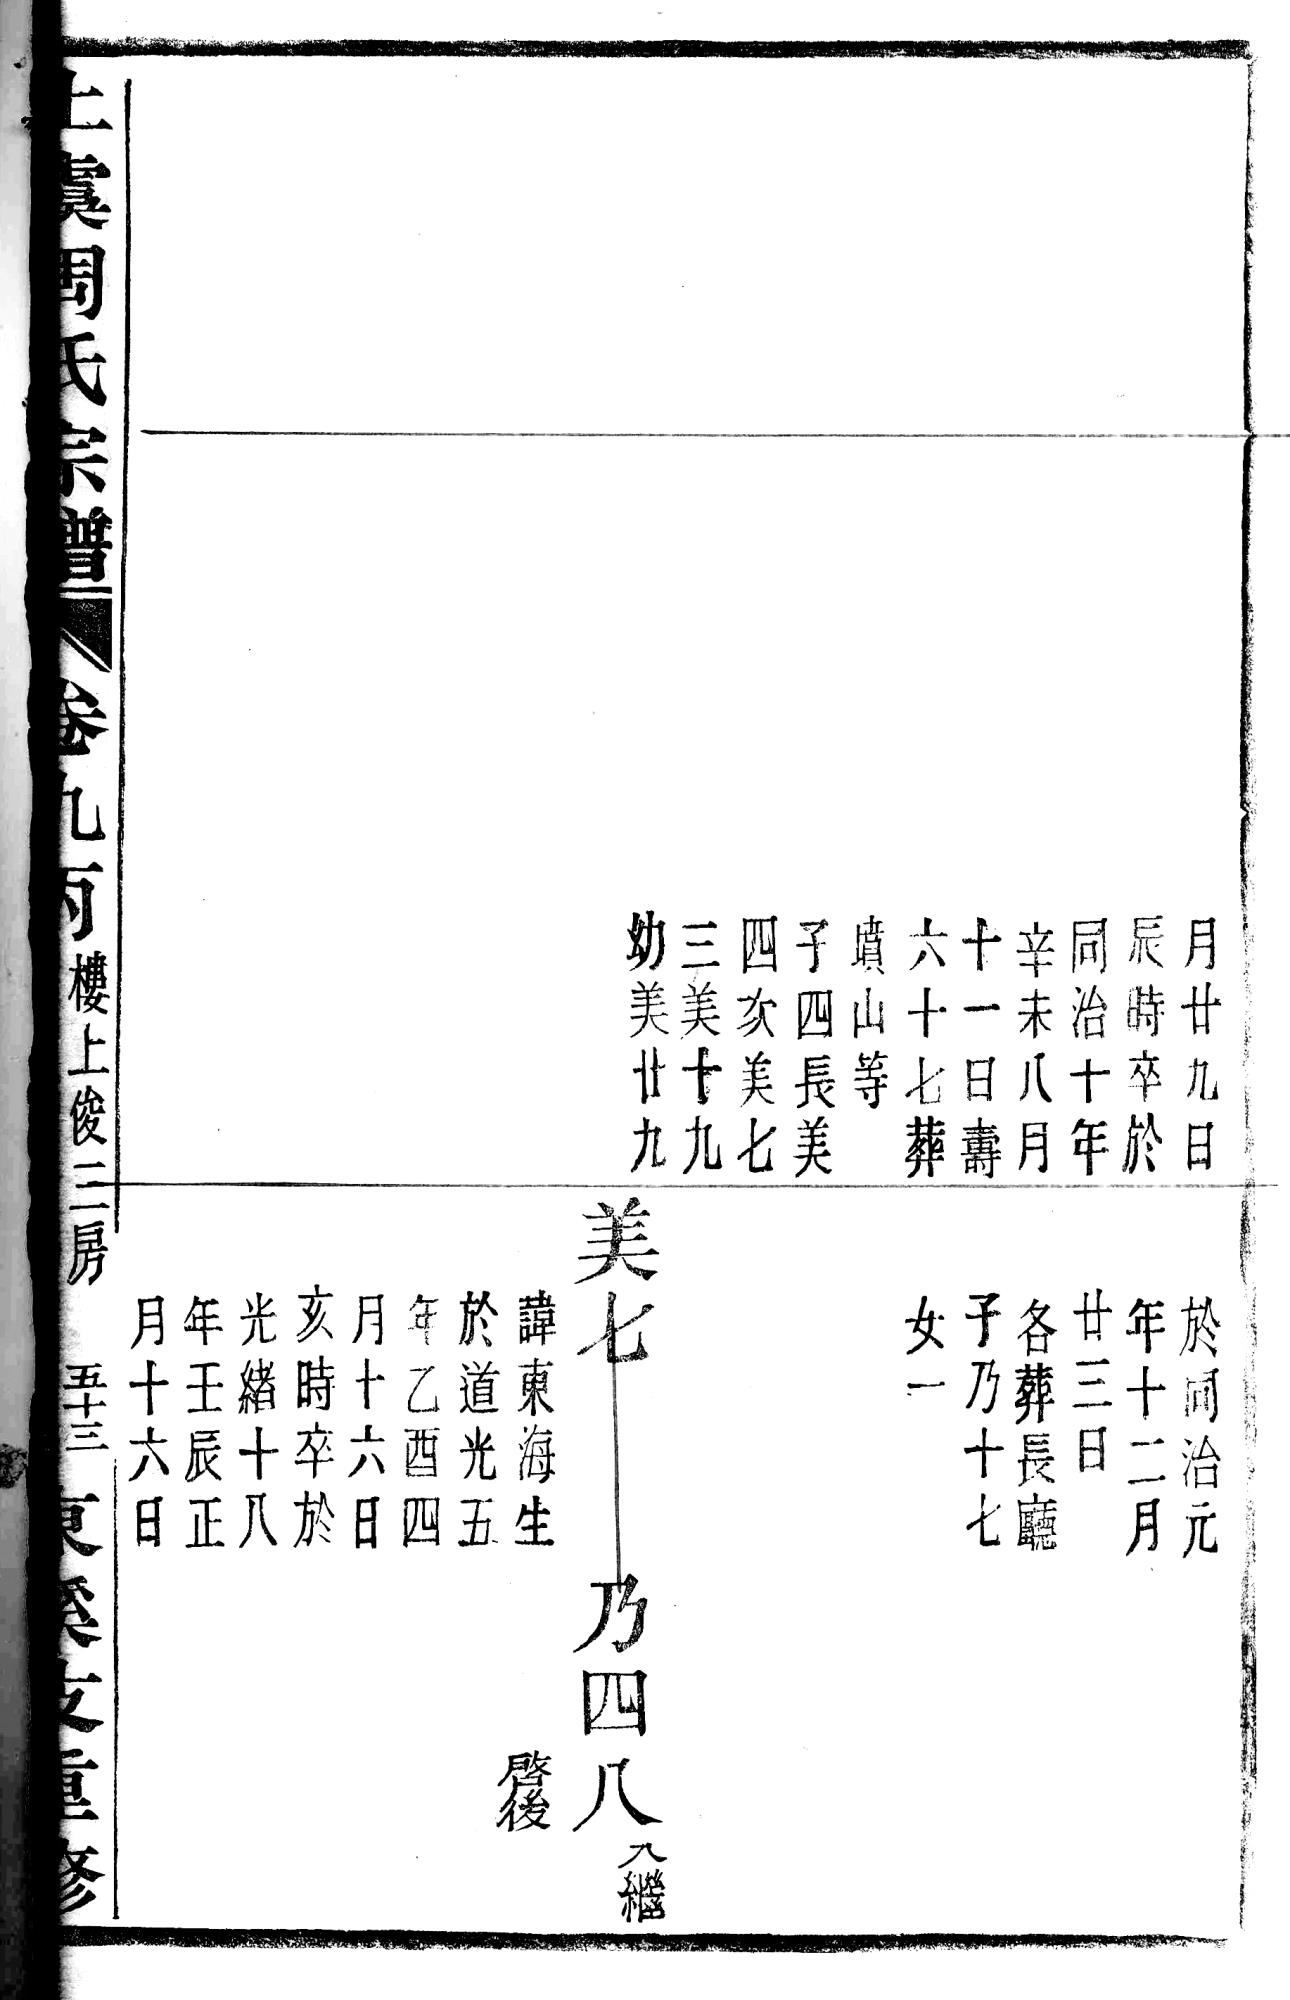 月廿九日
辰時卒於
同治十年
辛未八月
十一日壽
六十七葬
墳山等
子四長美
四次美七
三美十九
幼美廿九
於同治元
年十二月
廿三日
各葬長廳
子乃十七
女一
美七
乃四八
入繼
啓後
諱東海生
於道光五
年乙酉四
月十六日
亥時卒於
光緒十八
年壬辰正
月十六日
上虞周氏宗譜
卷九丙
樓上俊三房
五十三
東溪支重修